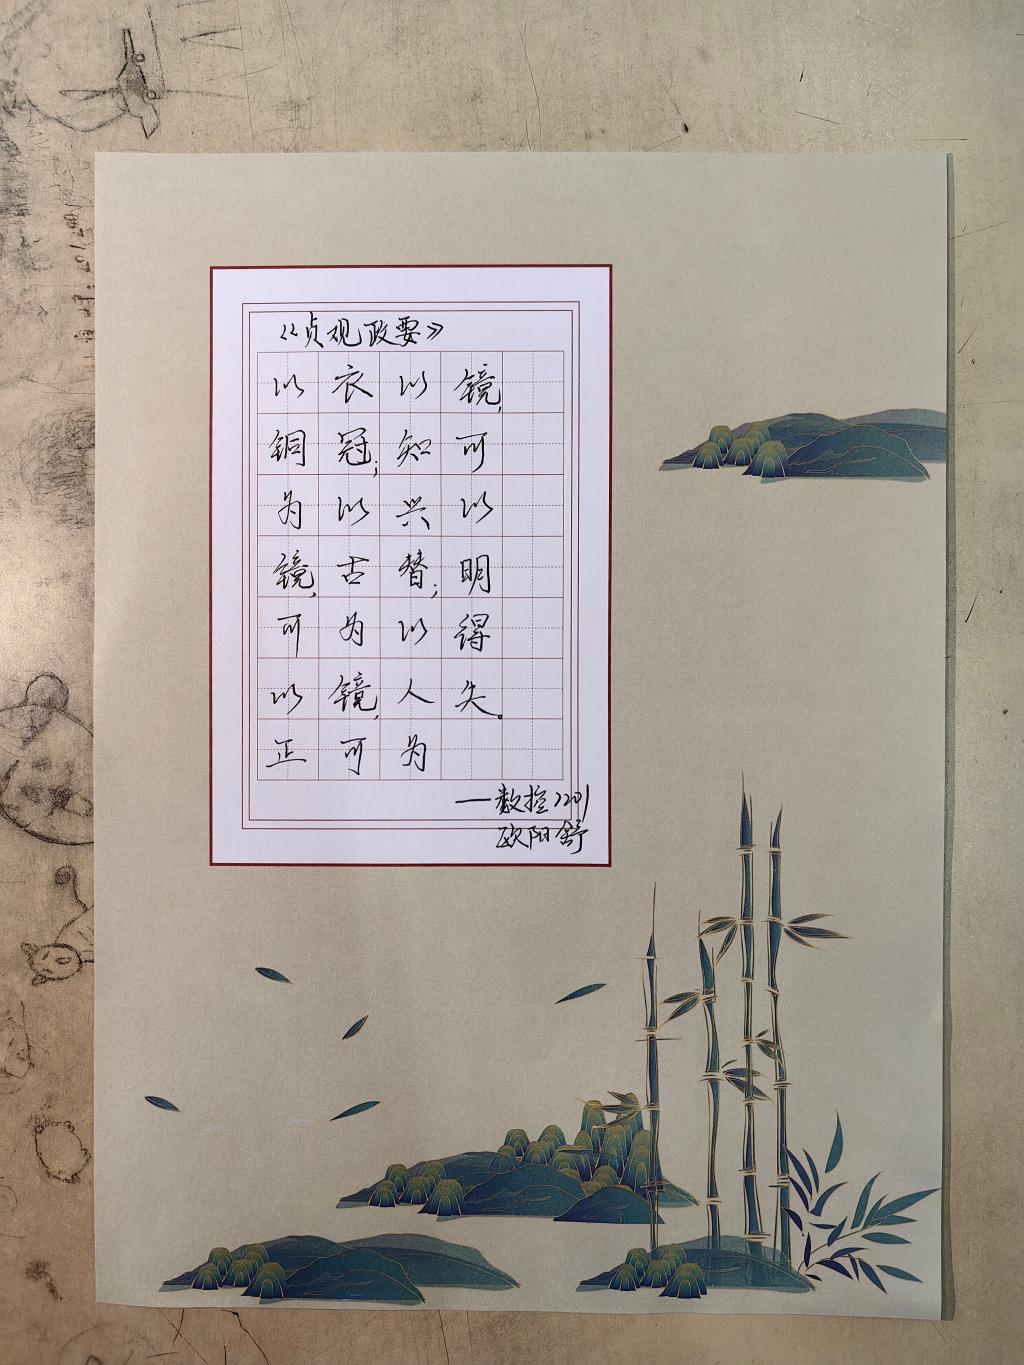 《贞观政要》
以铜为镜,可以正
衣冠;以古为镜,可
以知兴替;以人为
镜,可以明得失。
—数控2201
欧阳舒